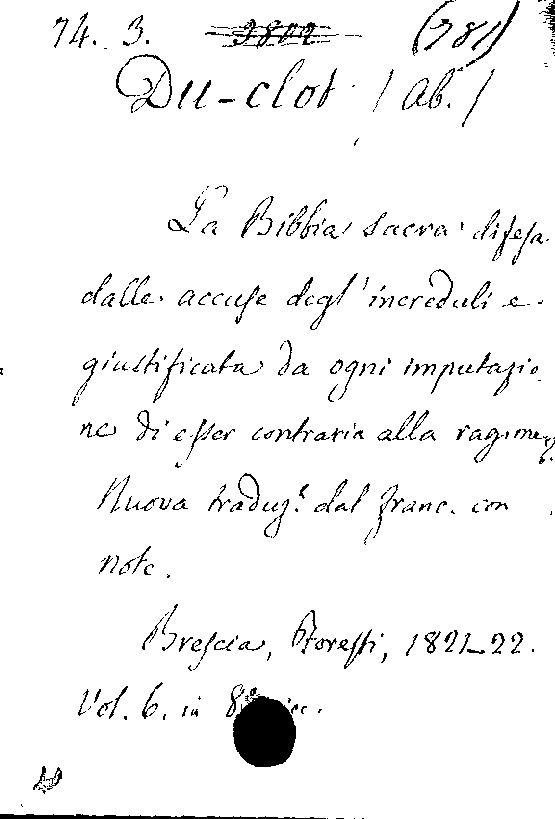 74. 3. 3802 (781)
Du-clot (Ab.)
La Bibbia sacra difesa
dalle accuse degl'increduli e
giustificata da ogni imputazio
ne di esser contraria alla ragione
Nuova traduz.e dal franc. con
note.
Brescia, 1821-22.
Vol. 6. in 8°